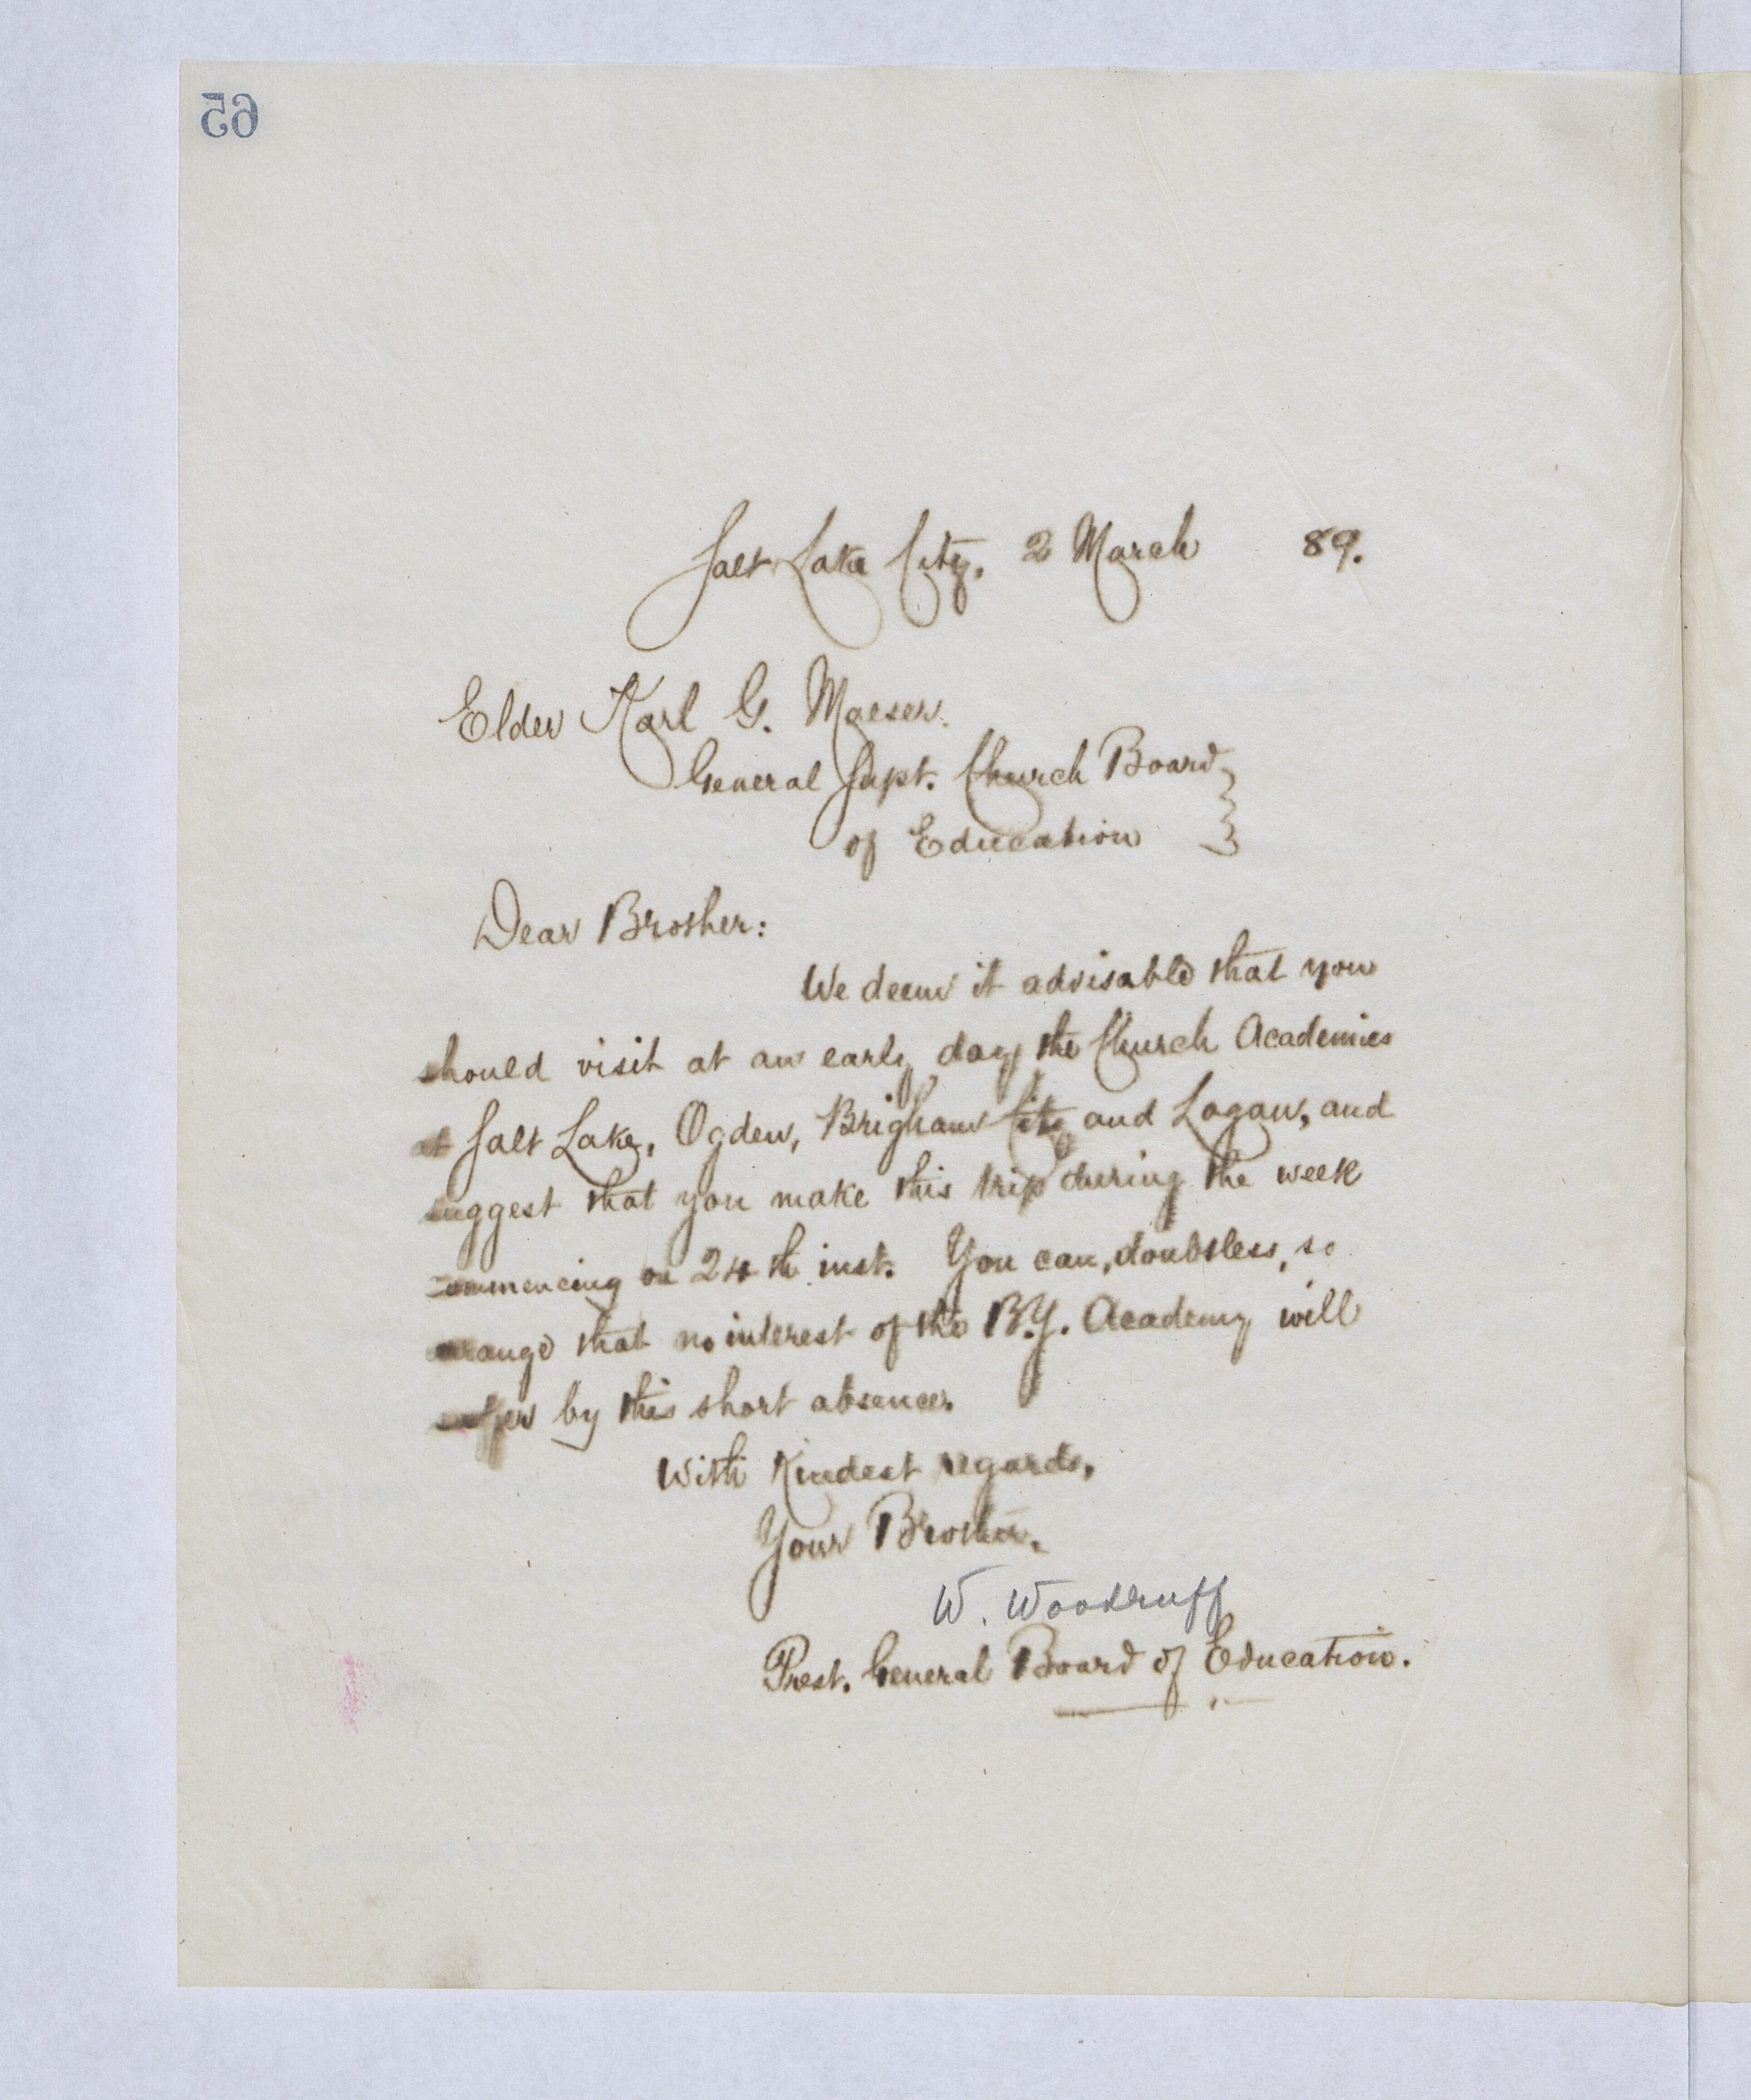 65
Salt Lake City, 2 March 89.
Elder Karl G. Maeser.
General Supt. Church Board
of Education
Dear Brother:
We deem it advisable that you
should visit at an early day the Church Academies
at Salt Lake, Ogden, Brigham City and Logan, and
suggest that you make this trip during the week
commencing on 24th inst. You can, doubtless, so
arrange that no interest of the B.Y. Academy will
suffer by this short absence.
With Kindest regards,
Your Brother,
W. Woodruff
Prest. General Board of Education.